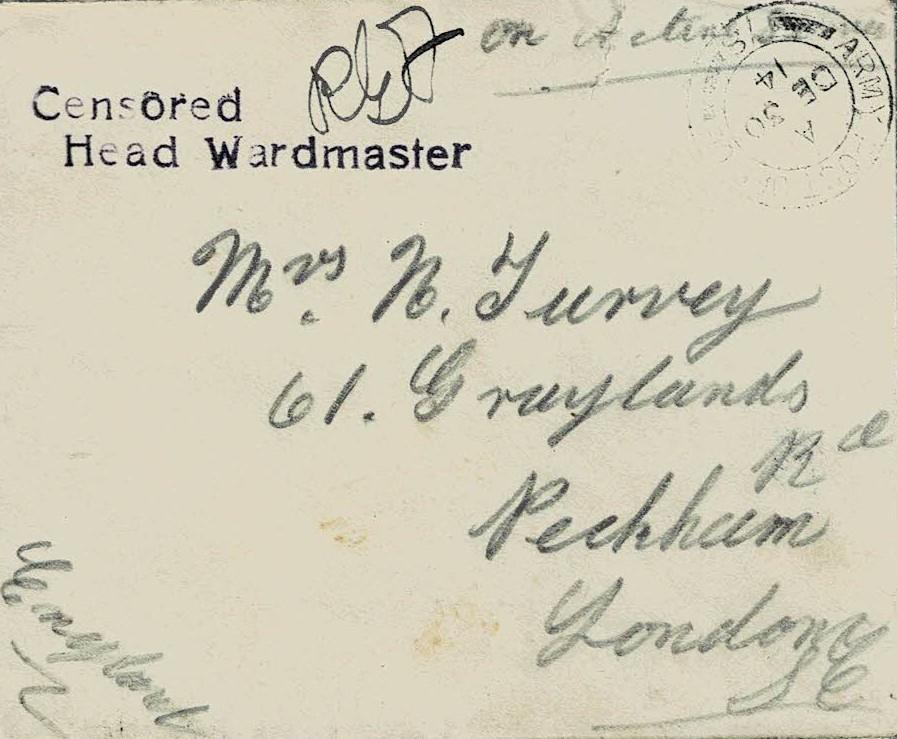 on Active Service
Censored
Head Wardmaster
ARMY POST O
A
30
DE
14
Mrs. N. Turvey
61. Graylands
Rd
Peckham
London
SE
England